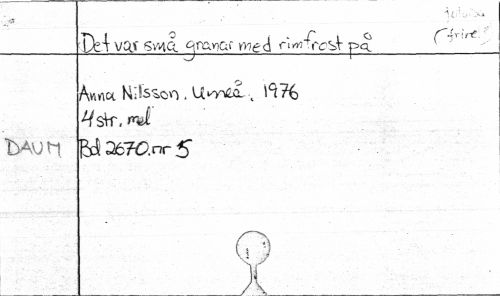 julvisa
(frire.?)
Det var små granar med rimfrost på
Anna Nilsson. Umeå. 1976
4 str. mel
DAUM Bd 2670. nr 5